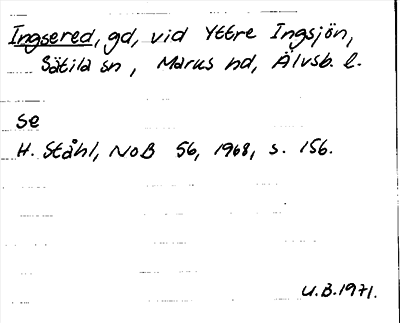 Ingsered, gd, vid Yttre Ingsjön,
Sätila sn, Marks hd, Älvsb. l.
se
H. Ståhl, NoB 56, 1968, s. 156.
U.B.1971.